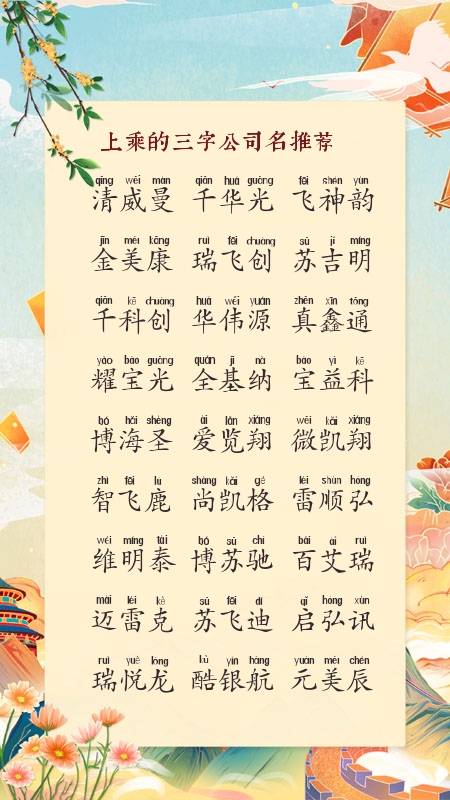 上乘的三字公司名推荐
qīng wēi màn qiān huá guāng fēi shén yùn
清威曼 千华光 飞神韵
jīn měi kāng ruì fēi chuàng sū jí míng
金美康 瑞飞创 苏吉明
qiān kē chuàng huá wěi yuán zhēn xīn tōng
千科创 华伟源 真鑫通
yào bǎo guāng quán jī nà bǎo yì kē
耀宝光 全基纳 宝益科
bó hǎi shèng ài lǎn xiáng wēi kǎi xiáng
博海圣 爱览翔 微凯翔
zhì fēi lù shàng kǎi gé léi shùn hóng
智飞鹿 尚凯格 雷顺弘
wéi míng tài bó sū chí bǎi ài ruì
维明泰 博苏驰 百艾瑞
mài léi kè sū fēi dí qǐ hóng xùn
迈雷克 苏飞迪 启弘讯
ruì yuè lóng kù yín háng yuán měi chén
瑞悦龙 酷银航 元美辰